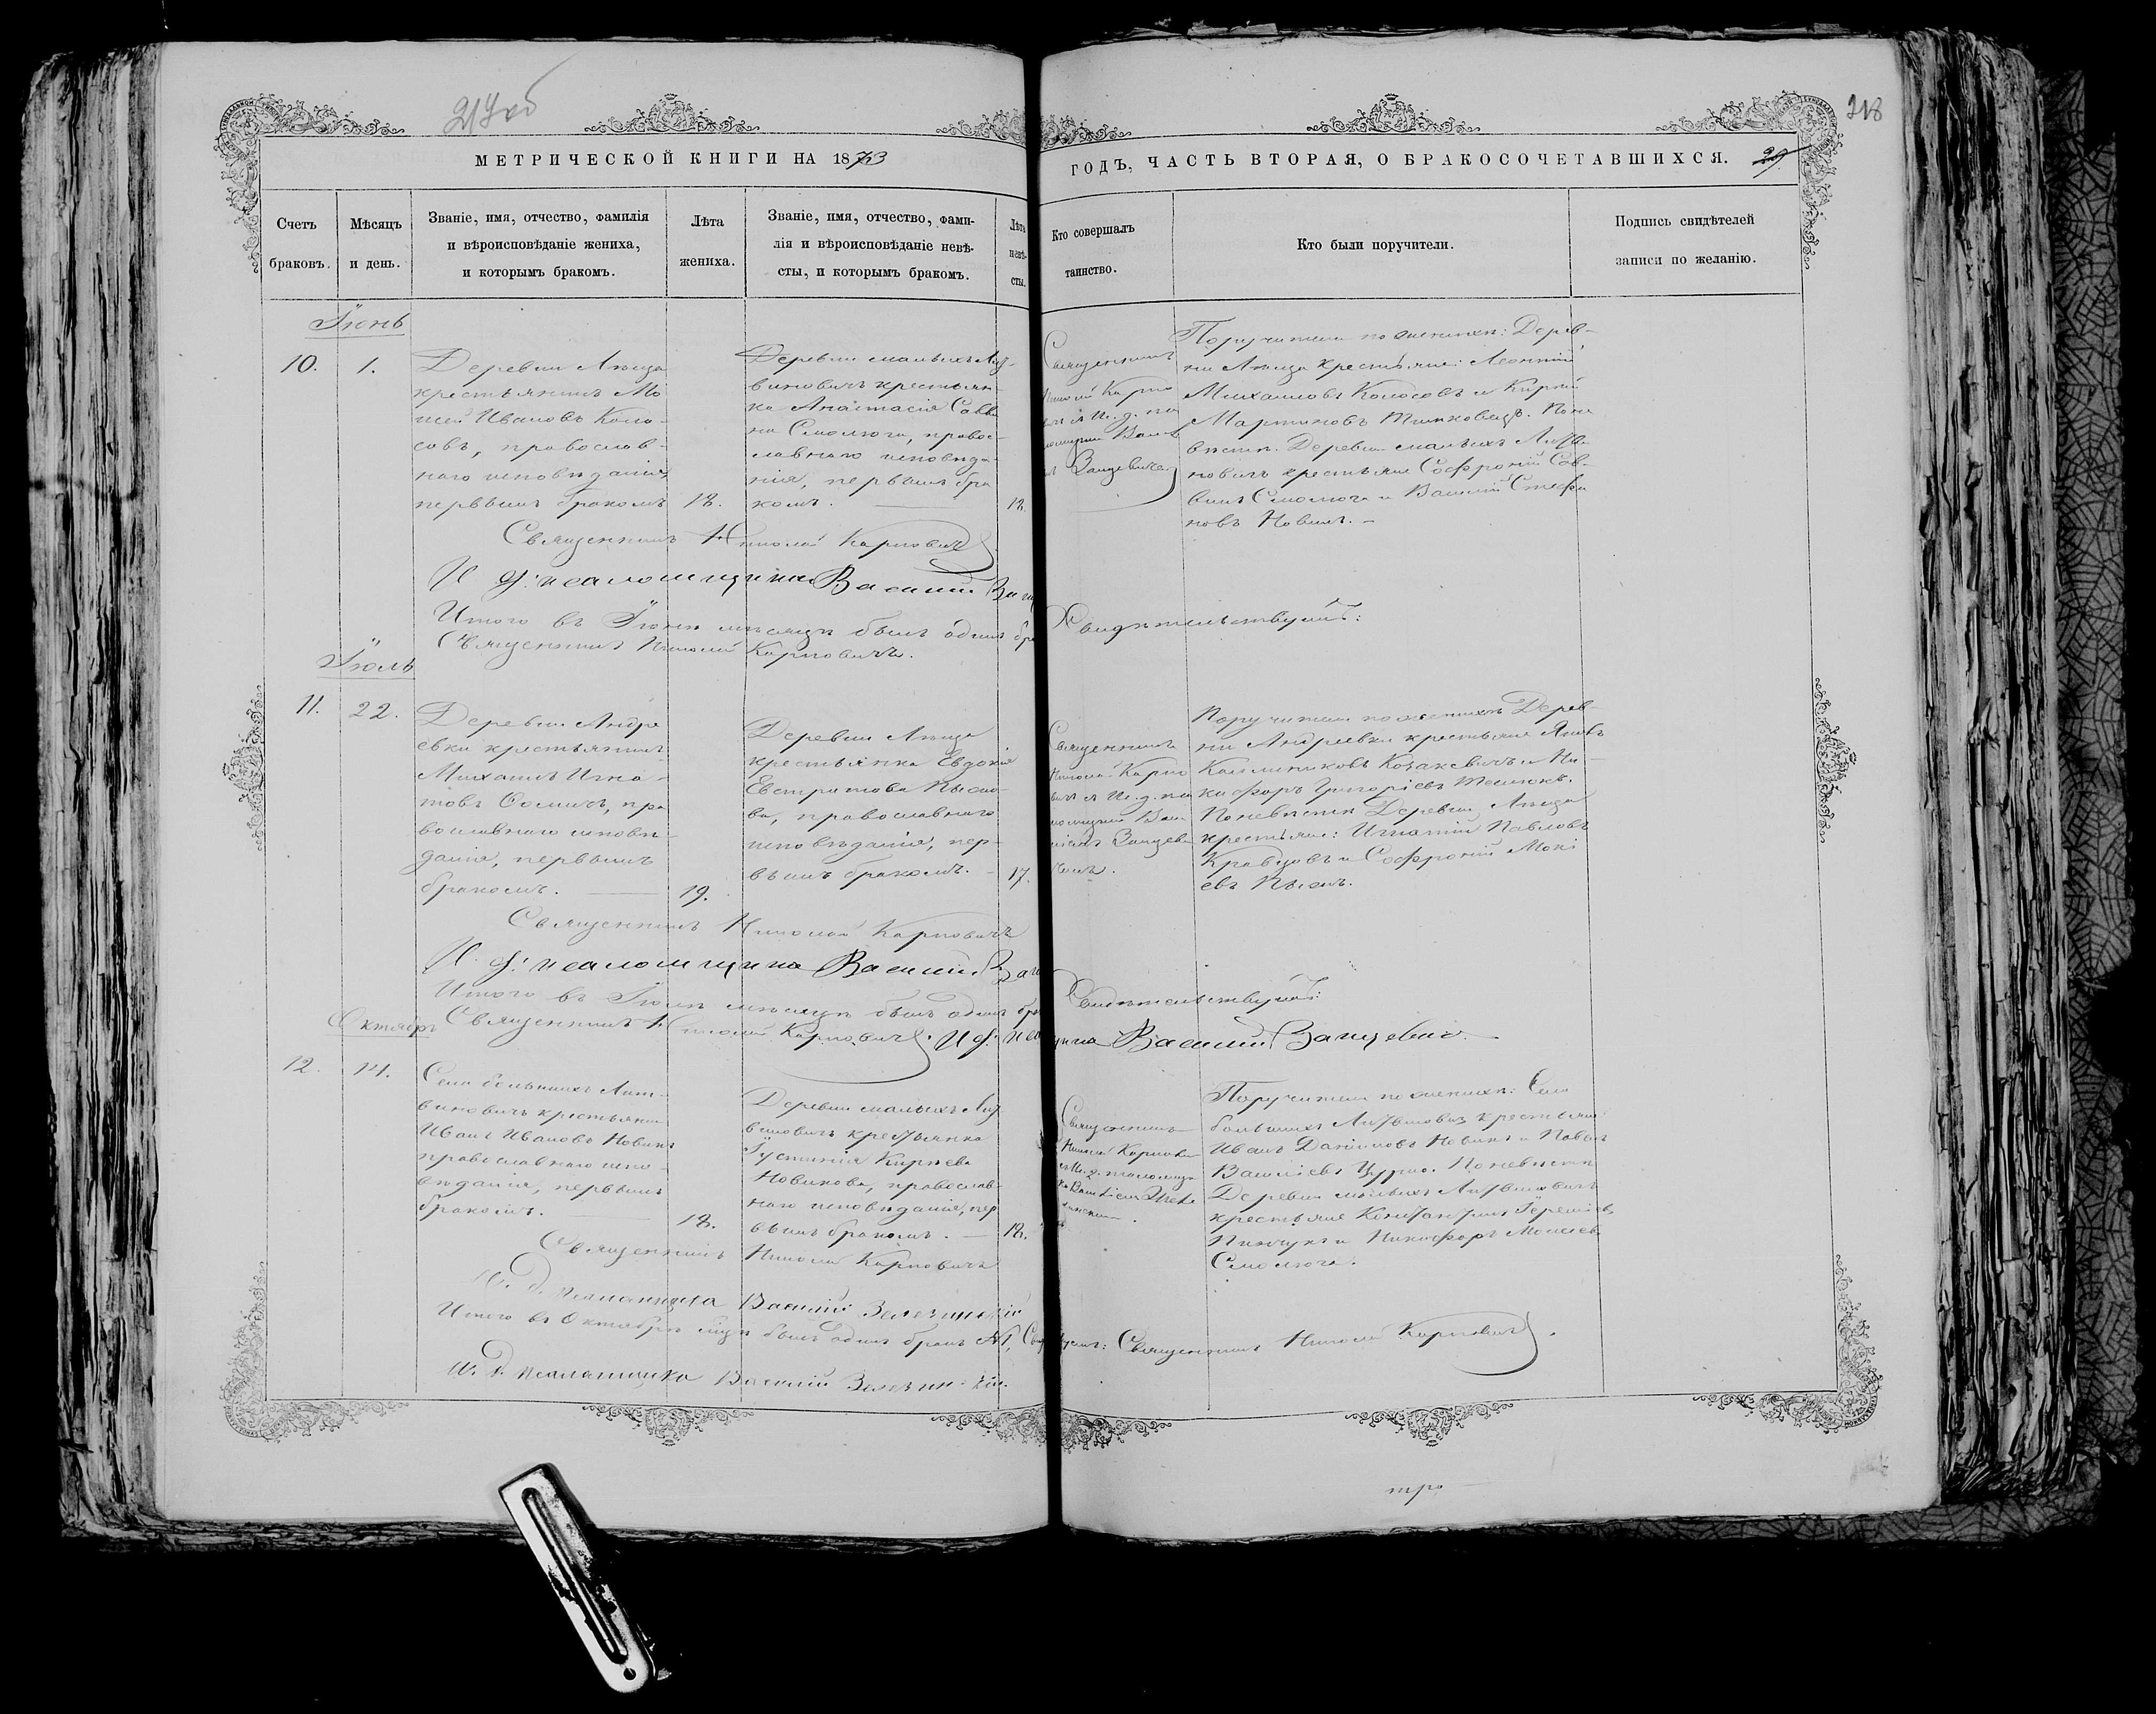 217 об
218
МЕТРИЧЕСКОЙ КНИГИ НА 1873
ГОДЪ, ЧАСТЬ ВТОРАЯ, О БРАКОСОЧЕТАВШИХСЯ.
29
Счетъ
браковъ.
Мѣсяцъ
и день.
Званіе, имя, отчество, фамилія
и вѣроисповѣданіе жениха,
и которымъ бракомъ.
Лѣта
жениха.
Званіе, имя, отчество, фами-
лія и вѣроисповѣданіе невѣ-
сты, и которымъ бракомъ.
Лѣта
невѣ-
сты.
Кто совершалъ
таинство.
Кто были поручители.
Подпись свидѣтелей
записи по желанію.
Іюнь
10.
1.
Деревни
крестьянинъ Мо
Ивановъ Коло-
совъ, православ-
наго исповѣданія,
первымъ бракомъ
18.
Деревни малыхъ Лит-
виновичъ крестьян-
ка Анастасія Савви
на Смолюга, правос-
лавнаго исповѣда-
нія, первымъ бра
комъ.
18.
Священникъ
Николай Карпо
вичъ и И. д. пса
ломщика Васи
Занцевичъ
Поручители по женихѣ: Дерев-
ни крестьяне: Леонтій
Михаиловъ Колосовъ и Кирилъ
Мартиновъ По не
вѣстѣ. Деревни малыхъ Литви-
новичъ крестьяне Софроній Сав-
винъ Смолюга и Василій Стефа
новъ Новикъ. -
Священникъ Николай Карповичъ
И. д: псаломщика Василій Зан
Итого въ Іюнѣ мѣсяцѣ былъ одинъ бра
Свидѣтельствуютъ:
Священникъ Николай Карповичъ.
Іюль
11.
22.
Деревни Андре
евки крестьянинъ
Михаилъ Игна-
товъ пра
вославнаго исповѣ-
данія, первымъ
бракомъ.
19.
Деревни
крестьянка Евдокія
Евстратова
ва, православнаго
исповѣданія, пер-
вымъ бракомъ. -
17.
Священникъ
Николай Карпо
вичъ и И. д. пса
ломщика Ва
силій Занцеви
чемъ.
Поручители по женихѣ Дерев-
ни Андреевки крестьяне
Калиниковъ Козакевичъ и Ни-
кифоръ Григоріевъ
По невѣстѣ Деревни
крестьяне: Игнатій Павловъ
Кравцовъ и Софроній Моки
евъ
Священникъ Николай Карповичъ
И. д: псаломщика Василій Зан
Итого въ Іюлѣ мѣсяцѣ былъ одинъ бра
Свидѣтельствуютъ:
Священникъ Николай Карповичъ. И. д: псал
щика Василій Занцевичъ.
Октябрь
12.
14.
Села большихъ Лит-
виновичъ крестьянин
Иванъ Ивановъ Новикъ
православнаго испо-
вѣданія, первымъ
бракомъ.
18.
Деревни малыхъ Лит
виновичъ крестьянка
Іустинія Кирѣева
Новикова, православ-
наго исповѣданія, пер
вымъ бракомъ. -
18.
Священникъ
Николай Карпови
чъ И. д. псаломщи
ка Василіемъ
Поручители по женихѣ: Села
большихъ Литвиновичъ крестьяне
Иванъ Даніиловъ Новикъ и Павелъ
Василіевъ По невѣстѣ
Деревни малыхъ Литвиновичъ
крестьяне Константинъ
Пинчукъ и Никифоръ Моисеевъ
Смолюга.
Священникъ Николай Карповичъ
И. д. псаломщика Василій
Итого въ Октябрѣ мѣсяцѣ былъ одинъ бракъ №1, Свидѣ
ствуютъ: Священникъ Николай Карповичъ.
И. д. псаломщика Василій
тро